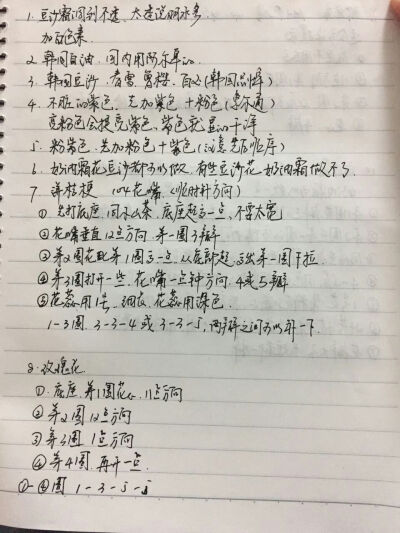 1. 豆沙霜调到不透，太透说明水多
加白色素
2. 韩国白油，国内用阿尔卑
3. 韩国豆沙：春雪、白玉（韩国品牌）
4. 不脏的紫色，先加紫色+粉色（惠尔通）
亮粉色会提亮紫色，紫色
5. 粉紫色：先加粉色+紫色（注意先后顺序）
6. 奶油霜花豆沙都可以做，有些豆沙花奶油霜做不了
7. 洋桔梗 104花嘴（顺时针方向）
①先打底座，同山茶，底座起高一点，不要太宽
②花嘴垂直12点方向，第一圈3瓣
③第2圈花比第1圈高一点，从底部起，高出第一圈下拉
④第3圈打开一些，花嘴一点钟方向，4或5瓣
⑤花蕊用1号，细花、花蕊用深色
1-3圈 3-3-4或3-3-5，两瓣之间可以补一下
8. 玫瑰花
①底座、第1圈花心、11点方向
②第2圈12点方向
③第3圈1点方向
④第4圈，再开一点
①-④圈 1-3-5-5